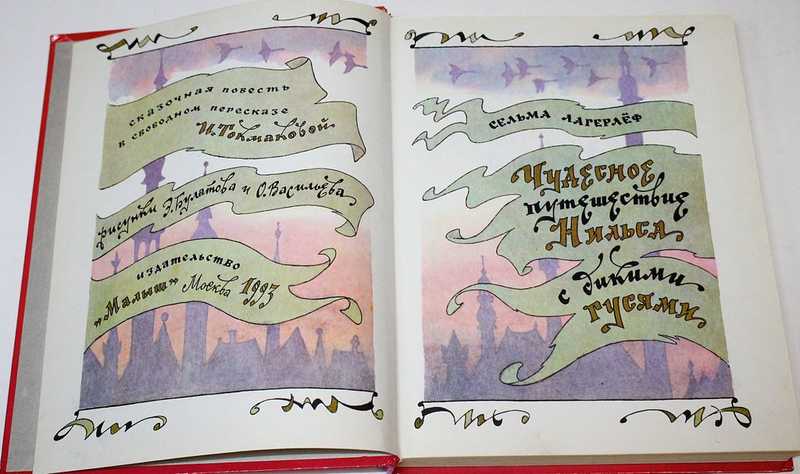 сказочная повесть
в свободном пересказе
И. Токмаковой
рисунки Э. Булатова и О. Васильева
издательство
"Малыш" Москва 1993
СЕЛЬМА ЛАГЕРЛЁФ
Чудесное
путешествие
Нильса
с дикими
гусями